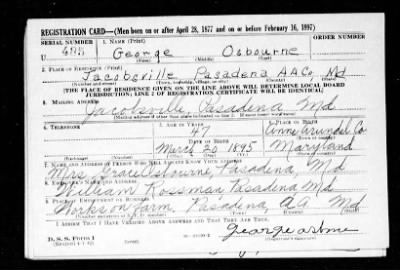 REGISTRATION CARD—(Men born on or after April 28, 1877 and on or before February 16, 1897)
SERIAL NUMBER
1. NAME (Print)
ORDER NUMBER
George Osbourne
(First) (Middle) (Last)
2. PLACE OF RESIDENCE (Print)
Jacobsville Pasadena A A Co, Md
(Number and street) (Town, township, village, or city) (County) (State)
[THE PLACE OF RESIDENCE GIVEN ON THE LINE ABOVE WILL DETERMINE LOCAL BOARD
JURISDICTION; LINE 2 OF REGISTRATION CERTIFICATE WILL BE IDENTICAL]
3. MAILING ADDRESS
Jacobsville, Pasadena Md
[Mailing address if other than place indicated on line 2. If same insert word same]
4. TELEPHONE
5. AGE IN YEARS
47
6. PLACE OF BIRTH
Anne Arundel Co
DATE OF BIRTH
March 20 1895
Maryland
(Exchange) (Number) (Mo.) (Day) (Yr.) (State or country)
7. NAME AND ADDRESS OF PERSON WHO WILL ALWAYS KNOW YOUR ADDRESS
Mrs Grace Osbourne, Pasadena, Md
8. EMPLOYER'S NAME AND ADDRESS
William Rossman Pasadena Md
9. PLACE OF EMPLOYMENT OR BUSINESS
Works on farm. Pasadena, A A Md
(Number and street or R. F. D. number) (Town) (County) (State)
I AFFIRM THAT I HAVE VERIFIED ABOVE ANSWERS AND THAT THEY ARE TRUE.
D. S. S. Form 1
(Revised 4-1-42) (over)
(Registrant's signature)